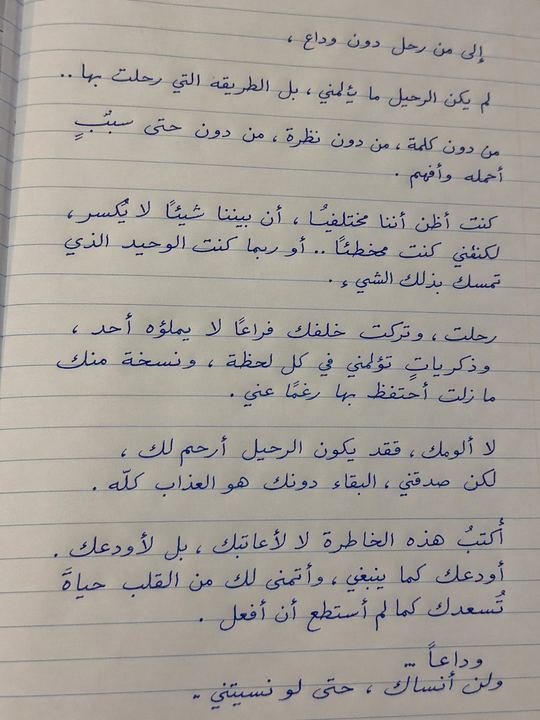 إلى من رحل دون وداع ،
لم يكن الرحيل ما يؤلمني ، بل الطريقه التي رحلت بها ..
من دون كلمة ، من دون نظرة ، من دون حتى سببٍ
أحمله وأفهم .
كنت أظن أننا مختلفين ، أن بيننا شيئًا لا يُكسر ،
لكنني كنت مخطئًا .. أو ربما كنت الوحيد الذي
تمسك بذلك الشيء .
رحلت ، وتركت خلفك فراغًا لا يملؤه أحد ،
وذكرياتٍ تؤلمني في كل لحظة ، ونسخة منك
ما زلت أحتفظ بها رغمًا عني .
لا ألومك ، فقد يكون الرحيل أرحم لك ،
لكن صدقني ، البقاء دونك هو العذاب كلّه .
أكتبُ هذه الخاطرة لا لأعاتبك ، بل لأودعك .
أودعك كما ينبغي ، وأتمنى لك من القلب حياةً
تُسعدك كما لم أستطع أن أفعل .
وداعاً ...
ولن أنساك ، حتى لو نسيتني ..